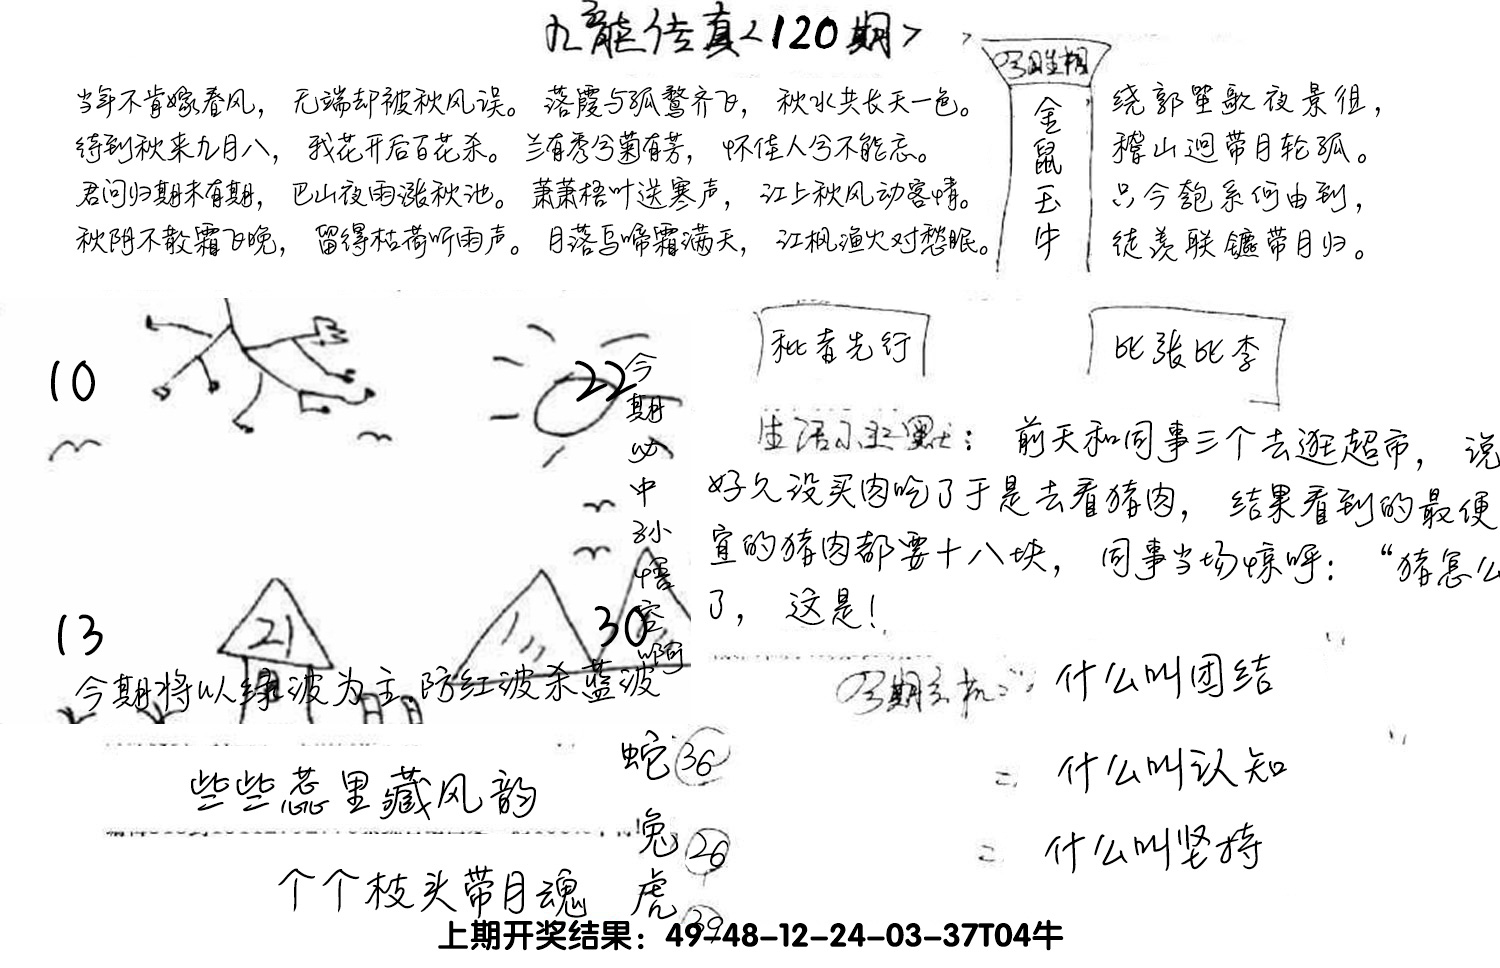 九龙传真<120期>
今日生相
金鼠玉牛
当年不肯嫁春风，无端却被秋风误。落霞与孤鹜齐飞，秋水共长天一色。
待到秋来九月八，我花开后百花杀。兰有秀兮菊有芳，怀佳人兮不能忘。
君问归期未有期，巴山夜雨涨秋池。萧萧梧叶送寒声，江上秋风动客情。
秋阴不散霜飞晚，留得枯荷听雨声。月落乌啼霜满天，江枫渔火对愁眠。
绕郭笙歌夜景徂，
稽山迥带月轮孤。
只今匏系何由到，
徒羡联镳带月归。
10
22
今期必中孙悟空啊
13
21
30
今期将以绿波为主防红波杀蓝波
秕者先行
比张比李
生活小幽默：前天和同事三个去逛超市，说
好久没买肉吃了于是去看猪肉，结果看到的最便
宜的猪肉都要十八块，同事当场惊呼：“猪怎么
了，这是！
今期玄机：什么叫团结
= 什么叫认知
= 什么叫坚持
些些蕊里藏风韵
个个枝头带月魂
蛇36
兔26
虎39
上期开奖结果：49-48-12-24-03-37T04牛